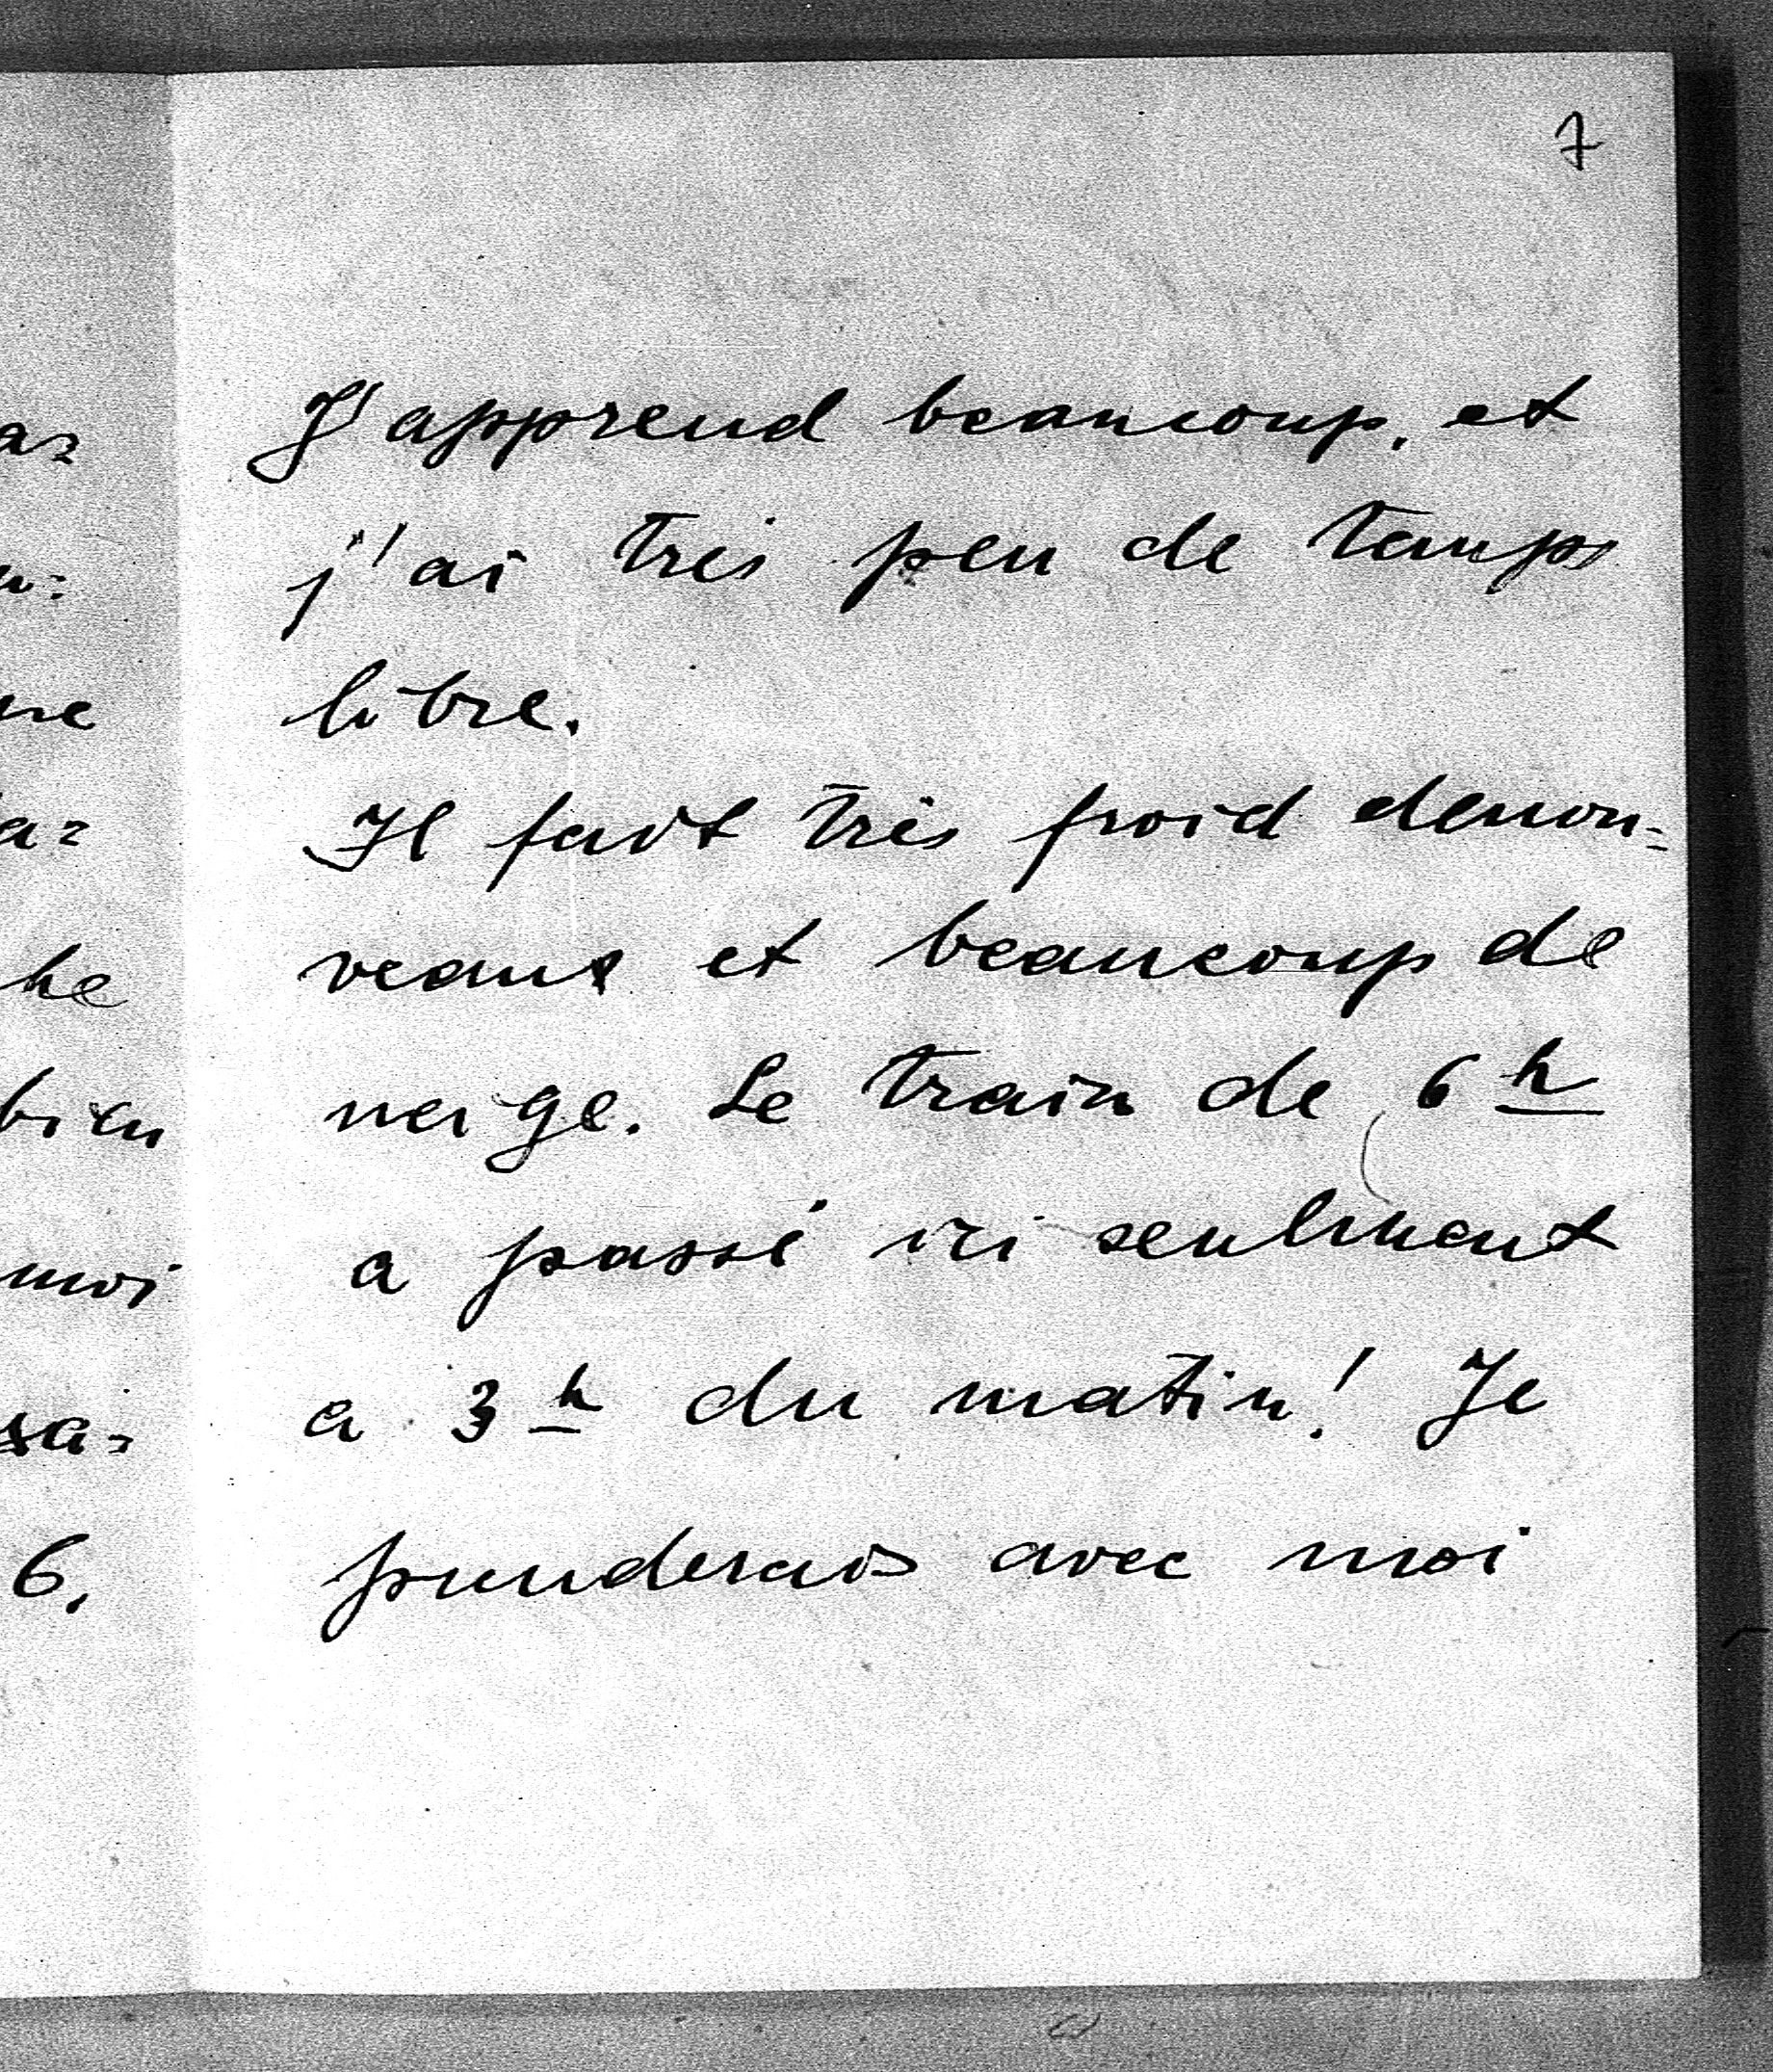 7
J'apprend beaucoup, et
j'ai tres peu de temps
libre.
Il fait très froid denou-
veaux et beaucoup de
neige. Le train de 6 h
a passé ici seulment
a 3 h du matin! Je
prenderais avec moi
he
bien
moi
sa-
6.